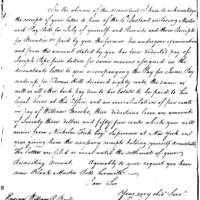 In the absence of the Accountant I have to acknowledge
the receipt of your letter to him of the 4th Instant enclosing Muster
and Pay Rolls for July of yourself and Recruits and their Receipts
for Bounties paid by you, the former has undergone examination
and from the amount stated by you has been deducted pay of
Joseph Pope four dollars for some reasons assigned in the
Accountants letter to you accompanying the Pay for June, Pay
made for Thomas Hill deceased eighty nine the same as
well as all other back pay due to his Estate to be paid to his
legal heirs at this Office, and an overcalculation of five cents
in pay of William Brooks, these deductions leave an amount
of Seventy three dollars and fifty five cents which you will
receive from Nicholas Fish Esqr. Supervisor at New York and
upon giving him the necessary receipt holding yourself accountable
The latters are filed as usual until the settlement of your
Recruiting Account. Agreeably to your request you have
some Blank Muster Rolls herewith.
I am Sir
Your very obt. Servt.
Ensign William